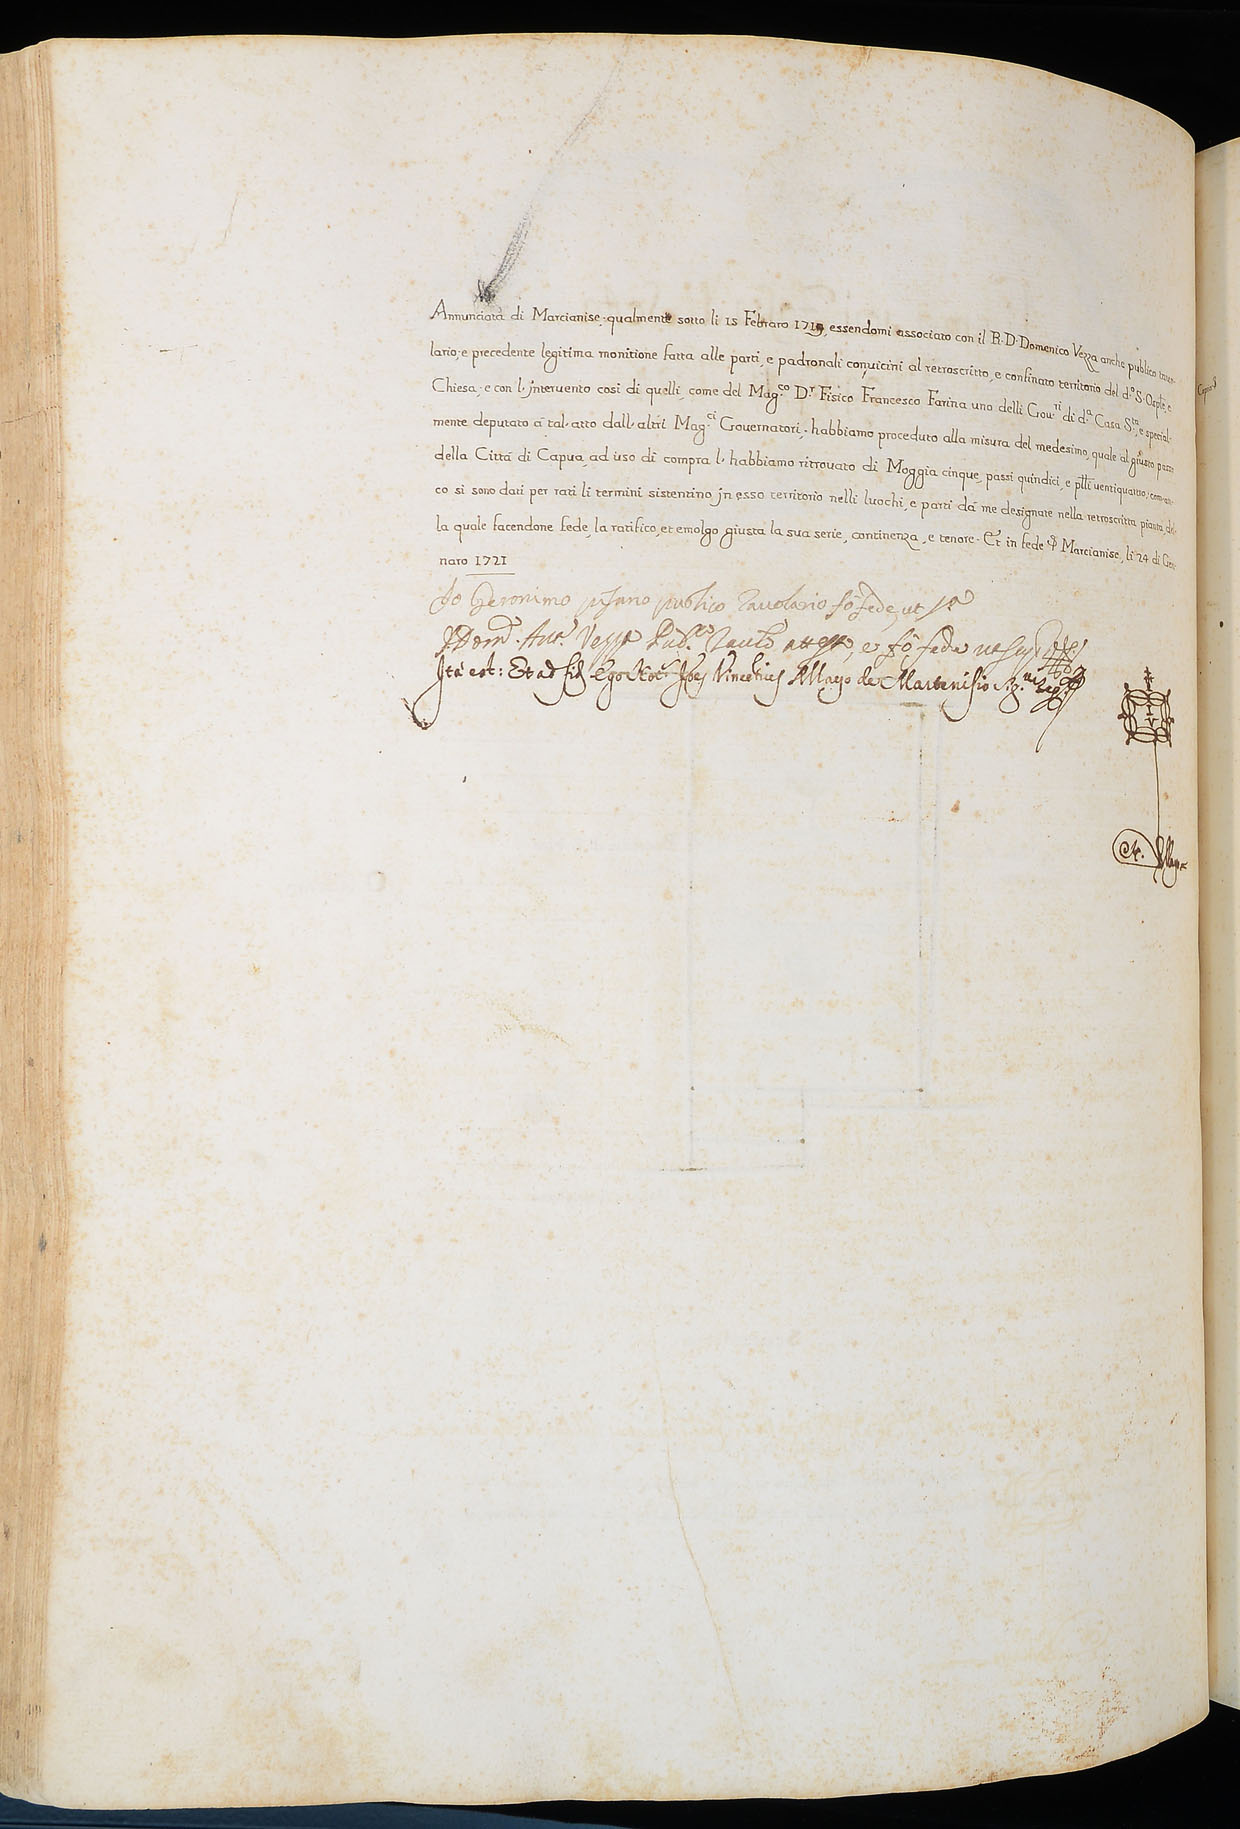 Annunciata di Marcianise, qualmente sotto li 15 Febraro 1719, essendomi associato con il R. D. Domenico Vezza anche publico tavo-
lario, e precedente legitima monitione fatta alle parti, e padronali convicini al retroscritto, e confinato territorio del d.º S. Ospitle, e
Chiesa, e con l'jntervento così di quelli, come del Mag.co D.r Fisico Francesco Farina uno delli Gov.ri di d.a Casa S.ta, e special-
mente deputato a tal' atto dall' altri Mag.ci Governatori, habbiamo proceduto alla misura del medesimo, quale al giusto passo
della Città di Capua, ad uso di compra l' habbiamo ritrovato di Moggia cinque, passi quindici, e p.lli ventiquattro,
co si sono dati per rati li termini sistentino jn esso territorio nelli luochi, e parti dà me designate nella retroscritta pianta, del-
la quale facendone fede, la ratifico, et emolgo giusta la sua serie, continenza, e tenore. Et in fede Marcianise, li 24 di Gen-
naro 1721
Io Geronimo pisano publico Tavolario fò fede ut s.a
D. Dom.co Ant.o Vezza Pub.co Tavul.o attesto, e fò fede ut sup.
Ita est: Et ad fid. Ego Not. Joes Vincetius Mayo de Martenisio
N. Mayo